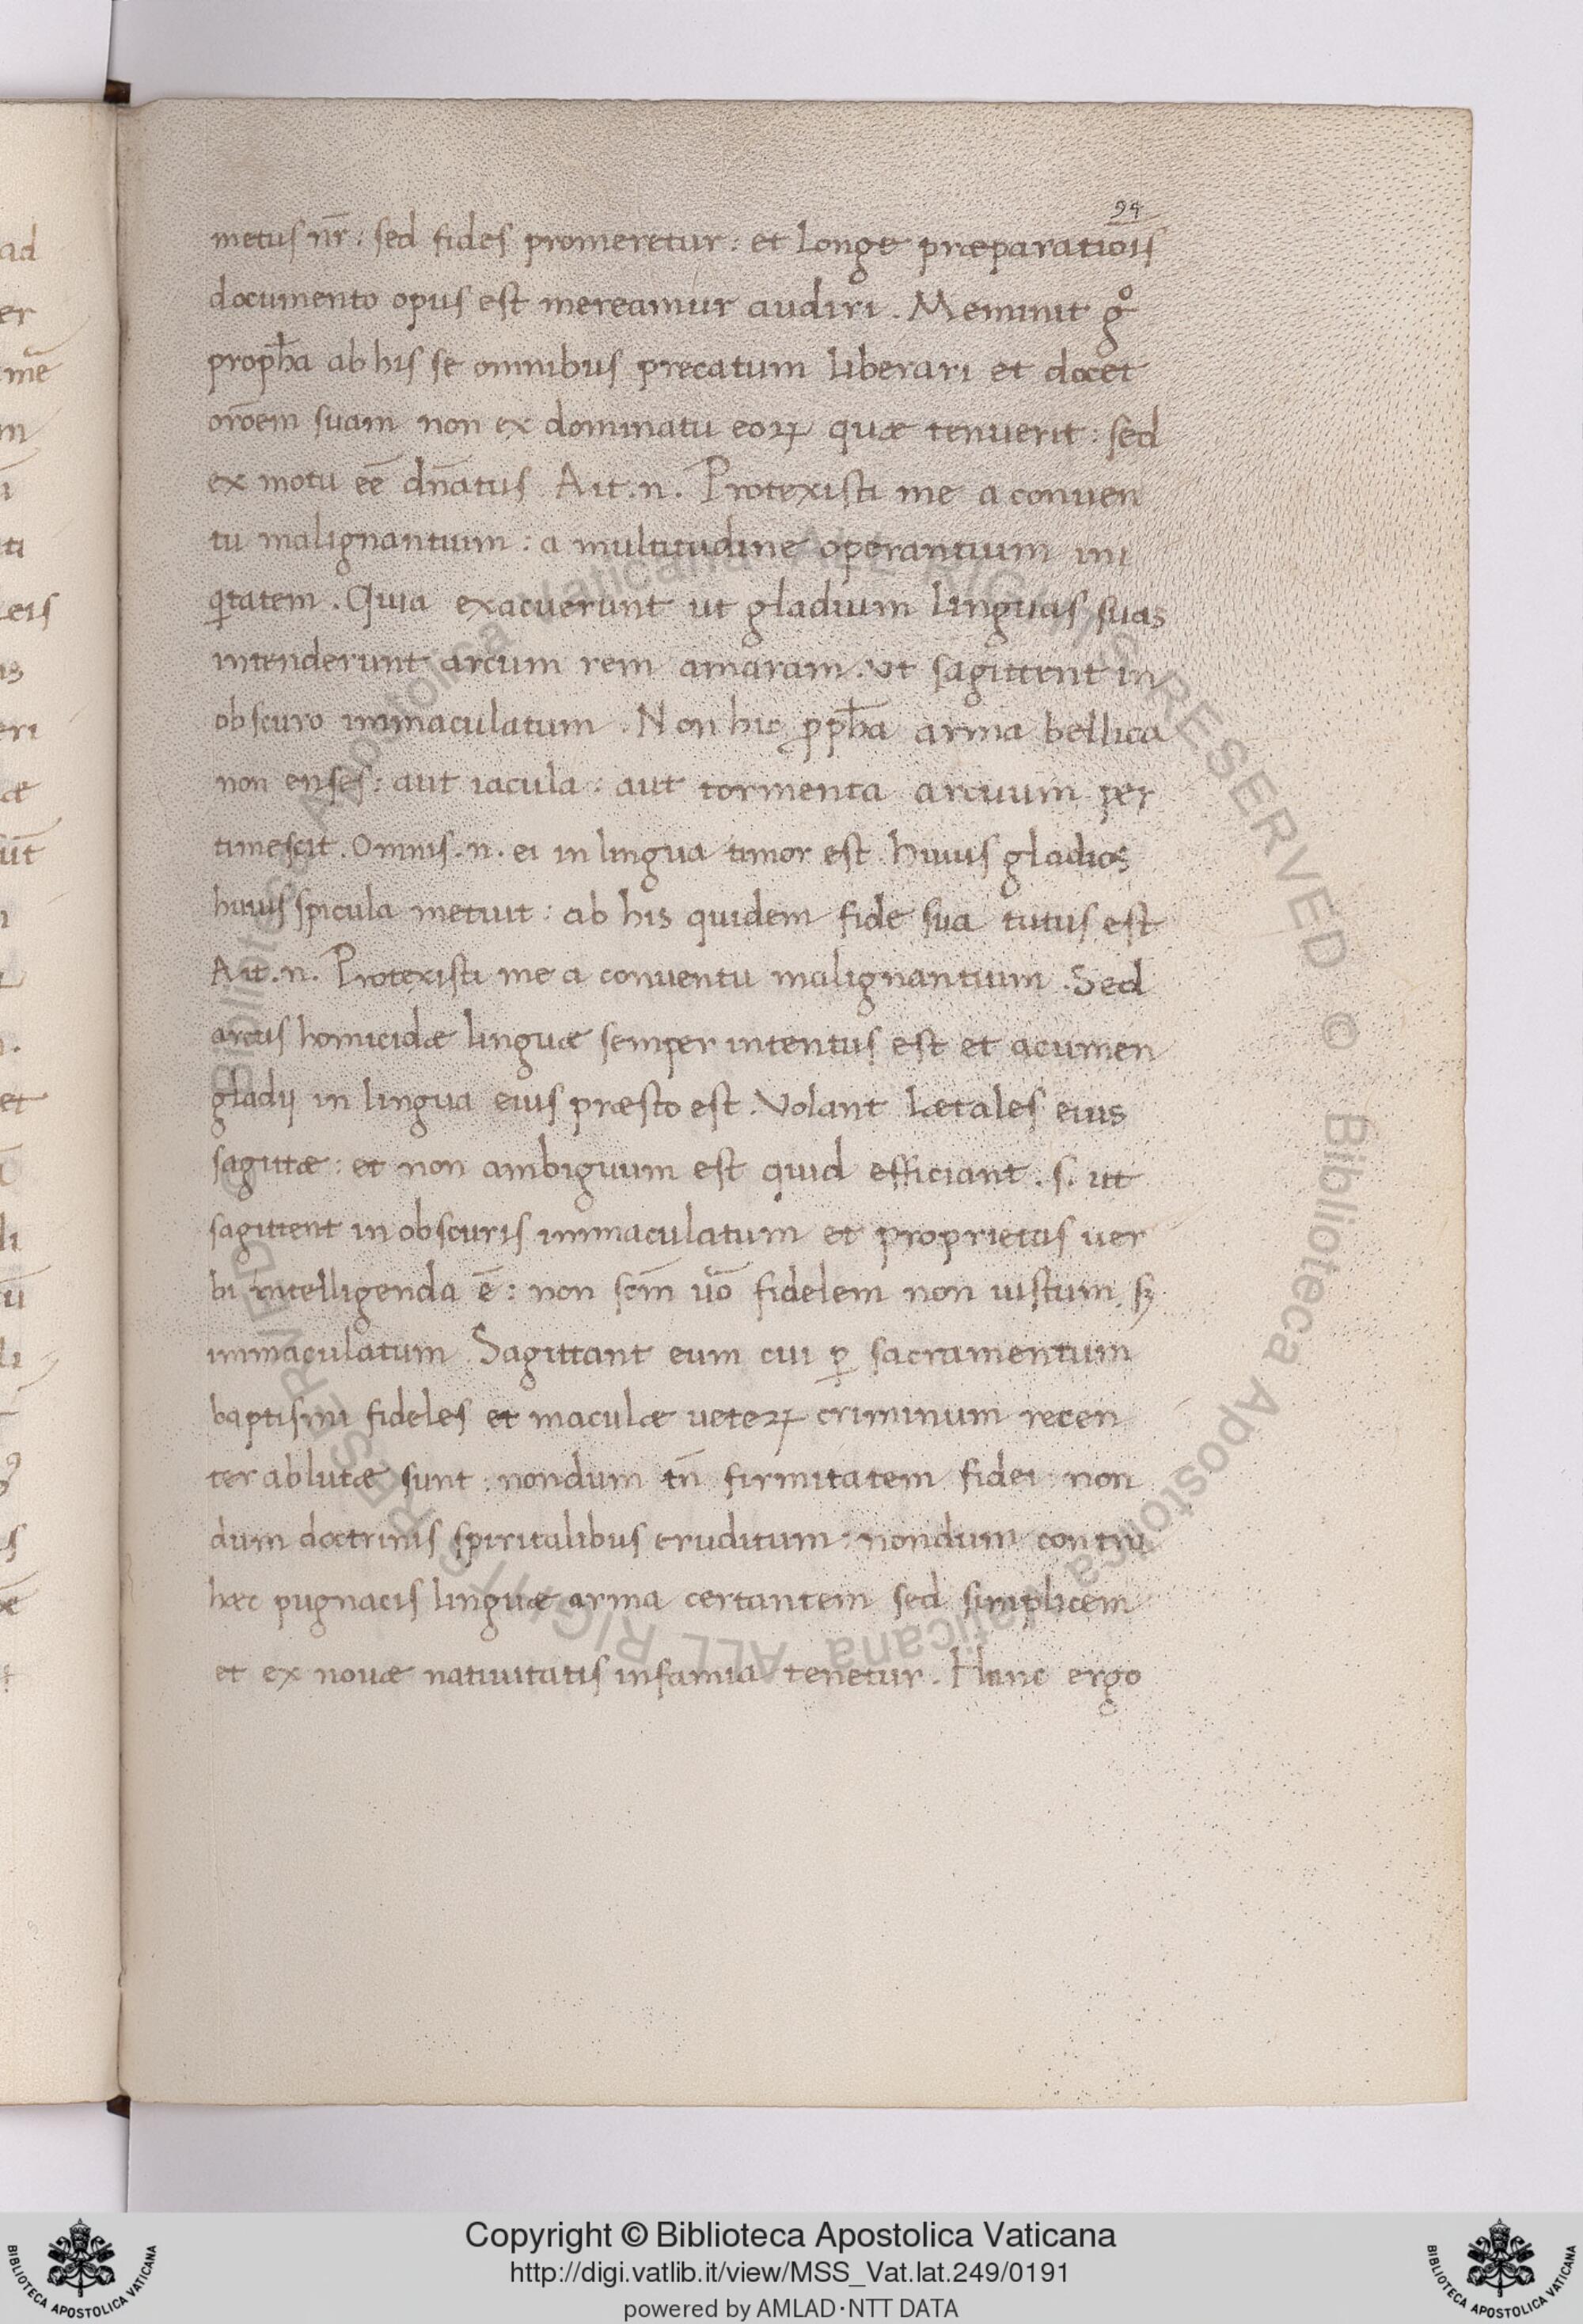 94
metus nr̄: sed fides promeretur: et longe præparatiōis
documento opus est mereamur audiri. Meminit gͦ
prophꝫa ab his se omnibus precatum liberari et docet
orōem suam non ex dominatu eoꝝ quæ tenuerit: sed
ex motu eē dn̄atus. Ait.n. Protexisti me a conuen
tu malignantium: a multitudine operantium ini
qtatem. Quia exacuerunt ut gladium linguas suas
intenderunt arcum rem amaram. Vt sagittent in
obscuro immaculatum. Non hic ꝓph̄a arma bellica
non enses: aut iacula: aut tormenta arcuum per
timescit. Omnis.n. ei in lingua timor est. huius gladios
huius spicula metuit: ab his quidem fide sua tutus est
Ait.n. Protexisti me a conuentu malignantium. Sed
arcus homicidæ linguæ semper intentus est et acumen
gladij in lingua eius præsto est. Volant lætales eius
sagittæ: et non ambiguum est quid efficiant. s. ut
sagittent in obscuris immaculatum et proprietas uer
bi intelligenda ē: non scm̄ uō fidelem non iustum sꝫ
immaculatum. Sagittant eum cui ꝑ sacramentum
baptismi fideles et maculæ ueteꝝ criminum recen
ter ablutæ sunt: nondum tn̄ firmitatem fidei non
dum doctrinis spiritalibus eruditum: nondum contra
hæc pugnacis linguæ arma certantem sed simplicem
et ex nouæ natiuitatis infamia tenetur. Hanc ergo
ad
er
mē
eis
eri
æ
ūt
et
li
Copyright © Biblioteca Apostolica Vaticana
http://digi.vatlib.it/view/MSS_Vat.lat.249/0191
powered by AMLAD·NTT DATA
BIBLIOTECA APOSTOLICA VATICANA
BIBLIOTECA APOSTOLICA VATICANA
© Biblioteca Apostolica Vaticana ALL RIGHTS RESERVED © Biblioteca Apostolica Vaticana ALL RIGHTS RESERVED